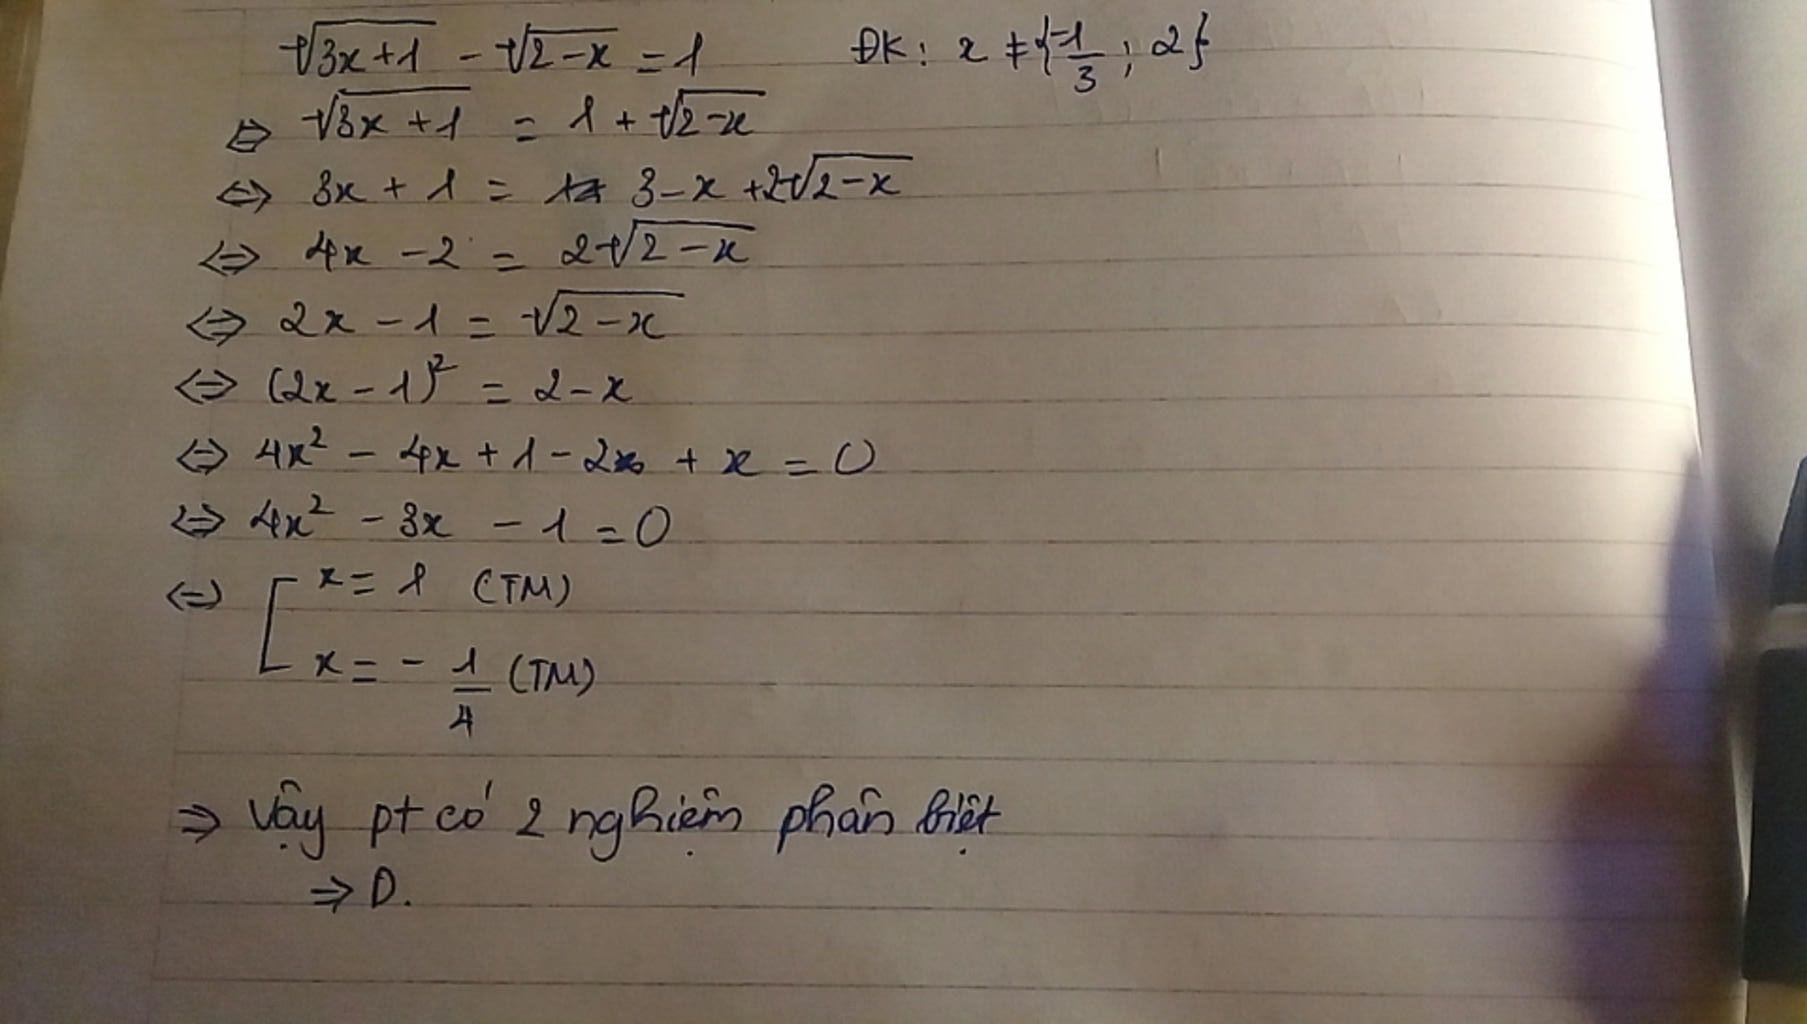 √3x+1 - √2-x = 1 ĐK: x ≠ {-1/3; 2}
⇔ √3x+1 = 1 + √2-x
⇔ 3x + 1 = 3-x +2√2-x
⇔ 4x - 2 = 2√2-x
⇔ 2x - 1 = √2-x
⇔ (2x - 1)² = 2-x
⇔ 4x² - 4x + 1 - 2 + x = 0
⇔ 4x² - 3x - 1 = 0
⇔ [ x = 1 (TM)
x = - 1/4 (TM)
⇒ Vậy pt có 2 nghiệm phân biệt
⇒ D.